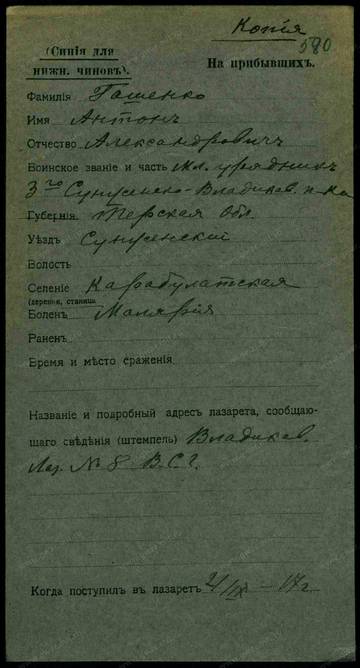 Копія
580
(Синія для
нижн. чиновъ).
На прибывшихъ.
Фамилія Гашенко
Имя Антонъ
Отчество Александровичъ
Воинское званіе и часть Мл. урядникъ
3го Сунженско-Владикав. п-ка
Губернія Терская обл.
Уѣздъ Сунженскій
Волость
Селеніе Карабулатская
(деревня, станица
Боленъ Малярія
Раненъ
Время и мѣсто сраженія
Названіе и подробный адресъ лазарета, сообщаю-
щаго свѣдѣнія (штемпель) Владикав.
Лаз. № 8 В.С.Г.
Когда поступилъ въ лазаретъ 4/IX – 17 г.